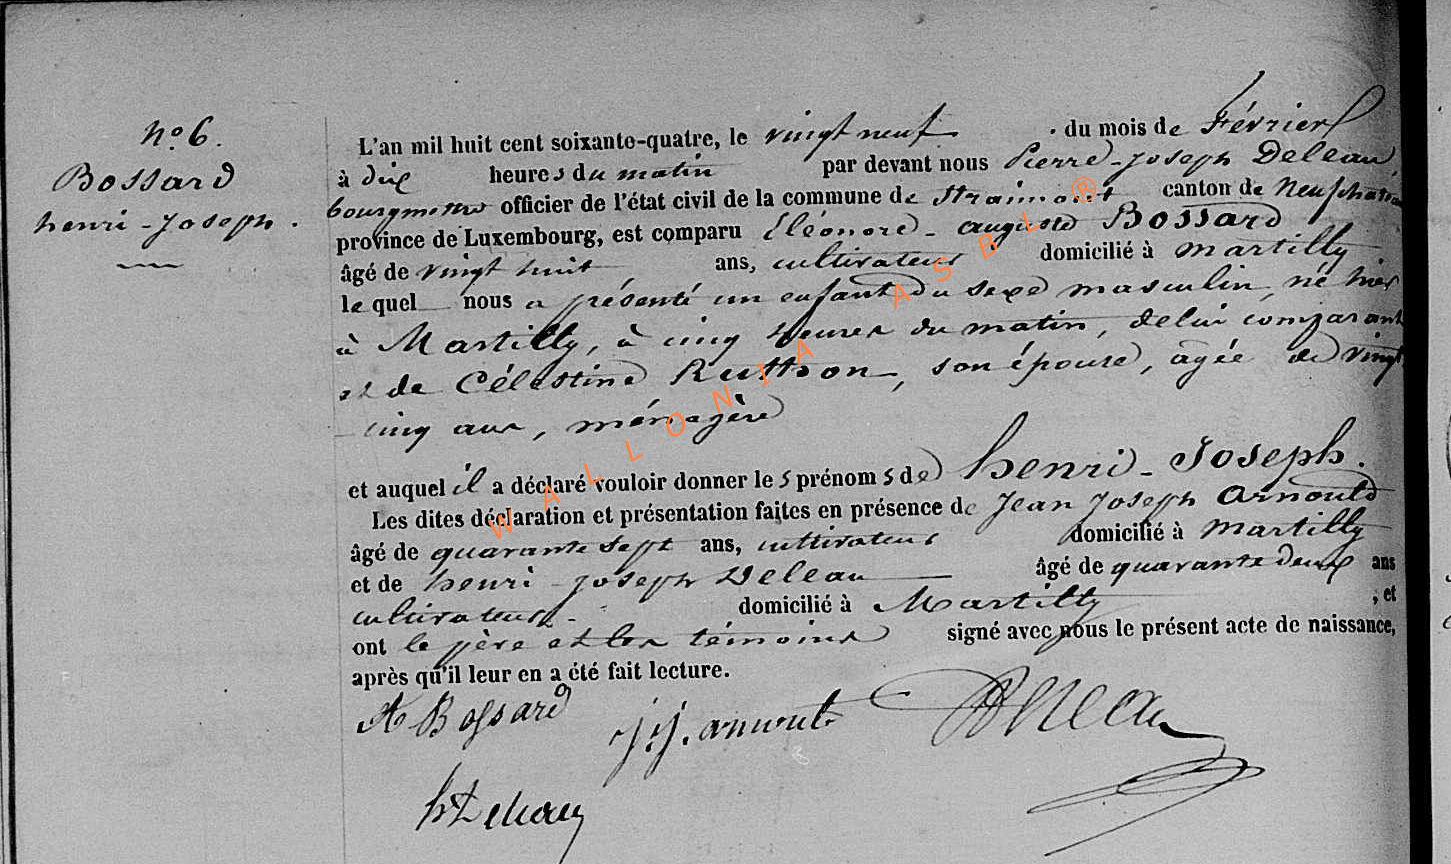 No 6.
Bossard
henri-Joseph.
L'an mil huit cent soixante-quatre, le vingt neuf du mois de Février
à dix heures du matin par devant nous Pierre-Joseph Deleau
bourgmestre officier de l'état civil de la commune de Straimont canton de Neufchâteau
province de Luxembourg, est comparu Eléonore-auguste Bossard
âgé de vingt huit ans, cultivateur domicilié à Martilly
lequel nous a présenté un enfant du sexe masculin, né hier
à Martilly, à cinq heures du matin, de lui comparant
et de Célestine Russon, son épouse, agée de vingt
cinq ans, ménagère
et auquel il a déclaré vouloir donner les prénoms de henri-Joseph.
Les dites déclaration et présentation faites en présence de Jean Joseph Arnould
âgé de quarante sept ans, cultivateur domicilié à Martilly
et de henri-Joseph Deleau âgé de quarante deux ans
cultivateur. domicilié à Martilly ; et
ont le père et les témoins signé avec nous le présent acte de naissance,
après qu'il leur en a été fait lecture.
A Bossard J.J. arnould Deleau
h Deleau
WALLONIA ASBL ®